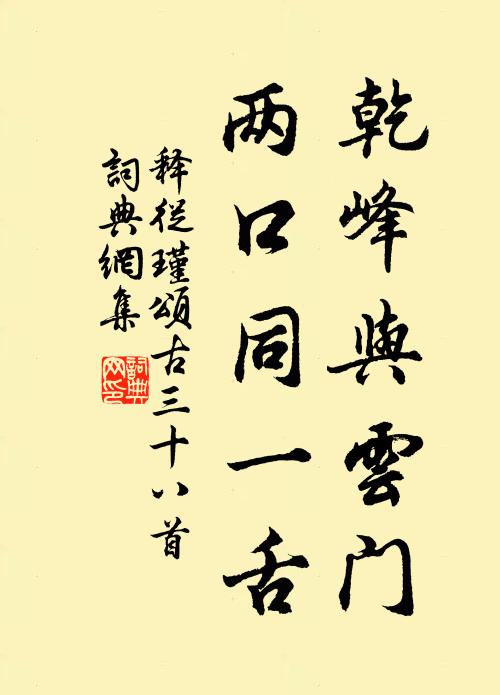 乾峰與雲门
两口同一舌
释從瑾頌古三十八首
詞典網集
詞典網印